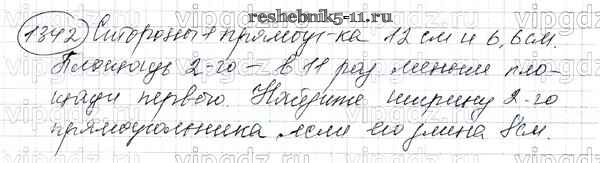 www.reshebnik5-11.ru
1342) Стороны прямоуг-ка 12 см и 6,6 см.
Площадь 2-го – в 11 раз меньше пло-
щади первого. Найдите ширину 2-го
прямоугольника если его длина 8 см.